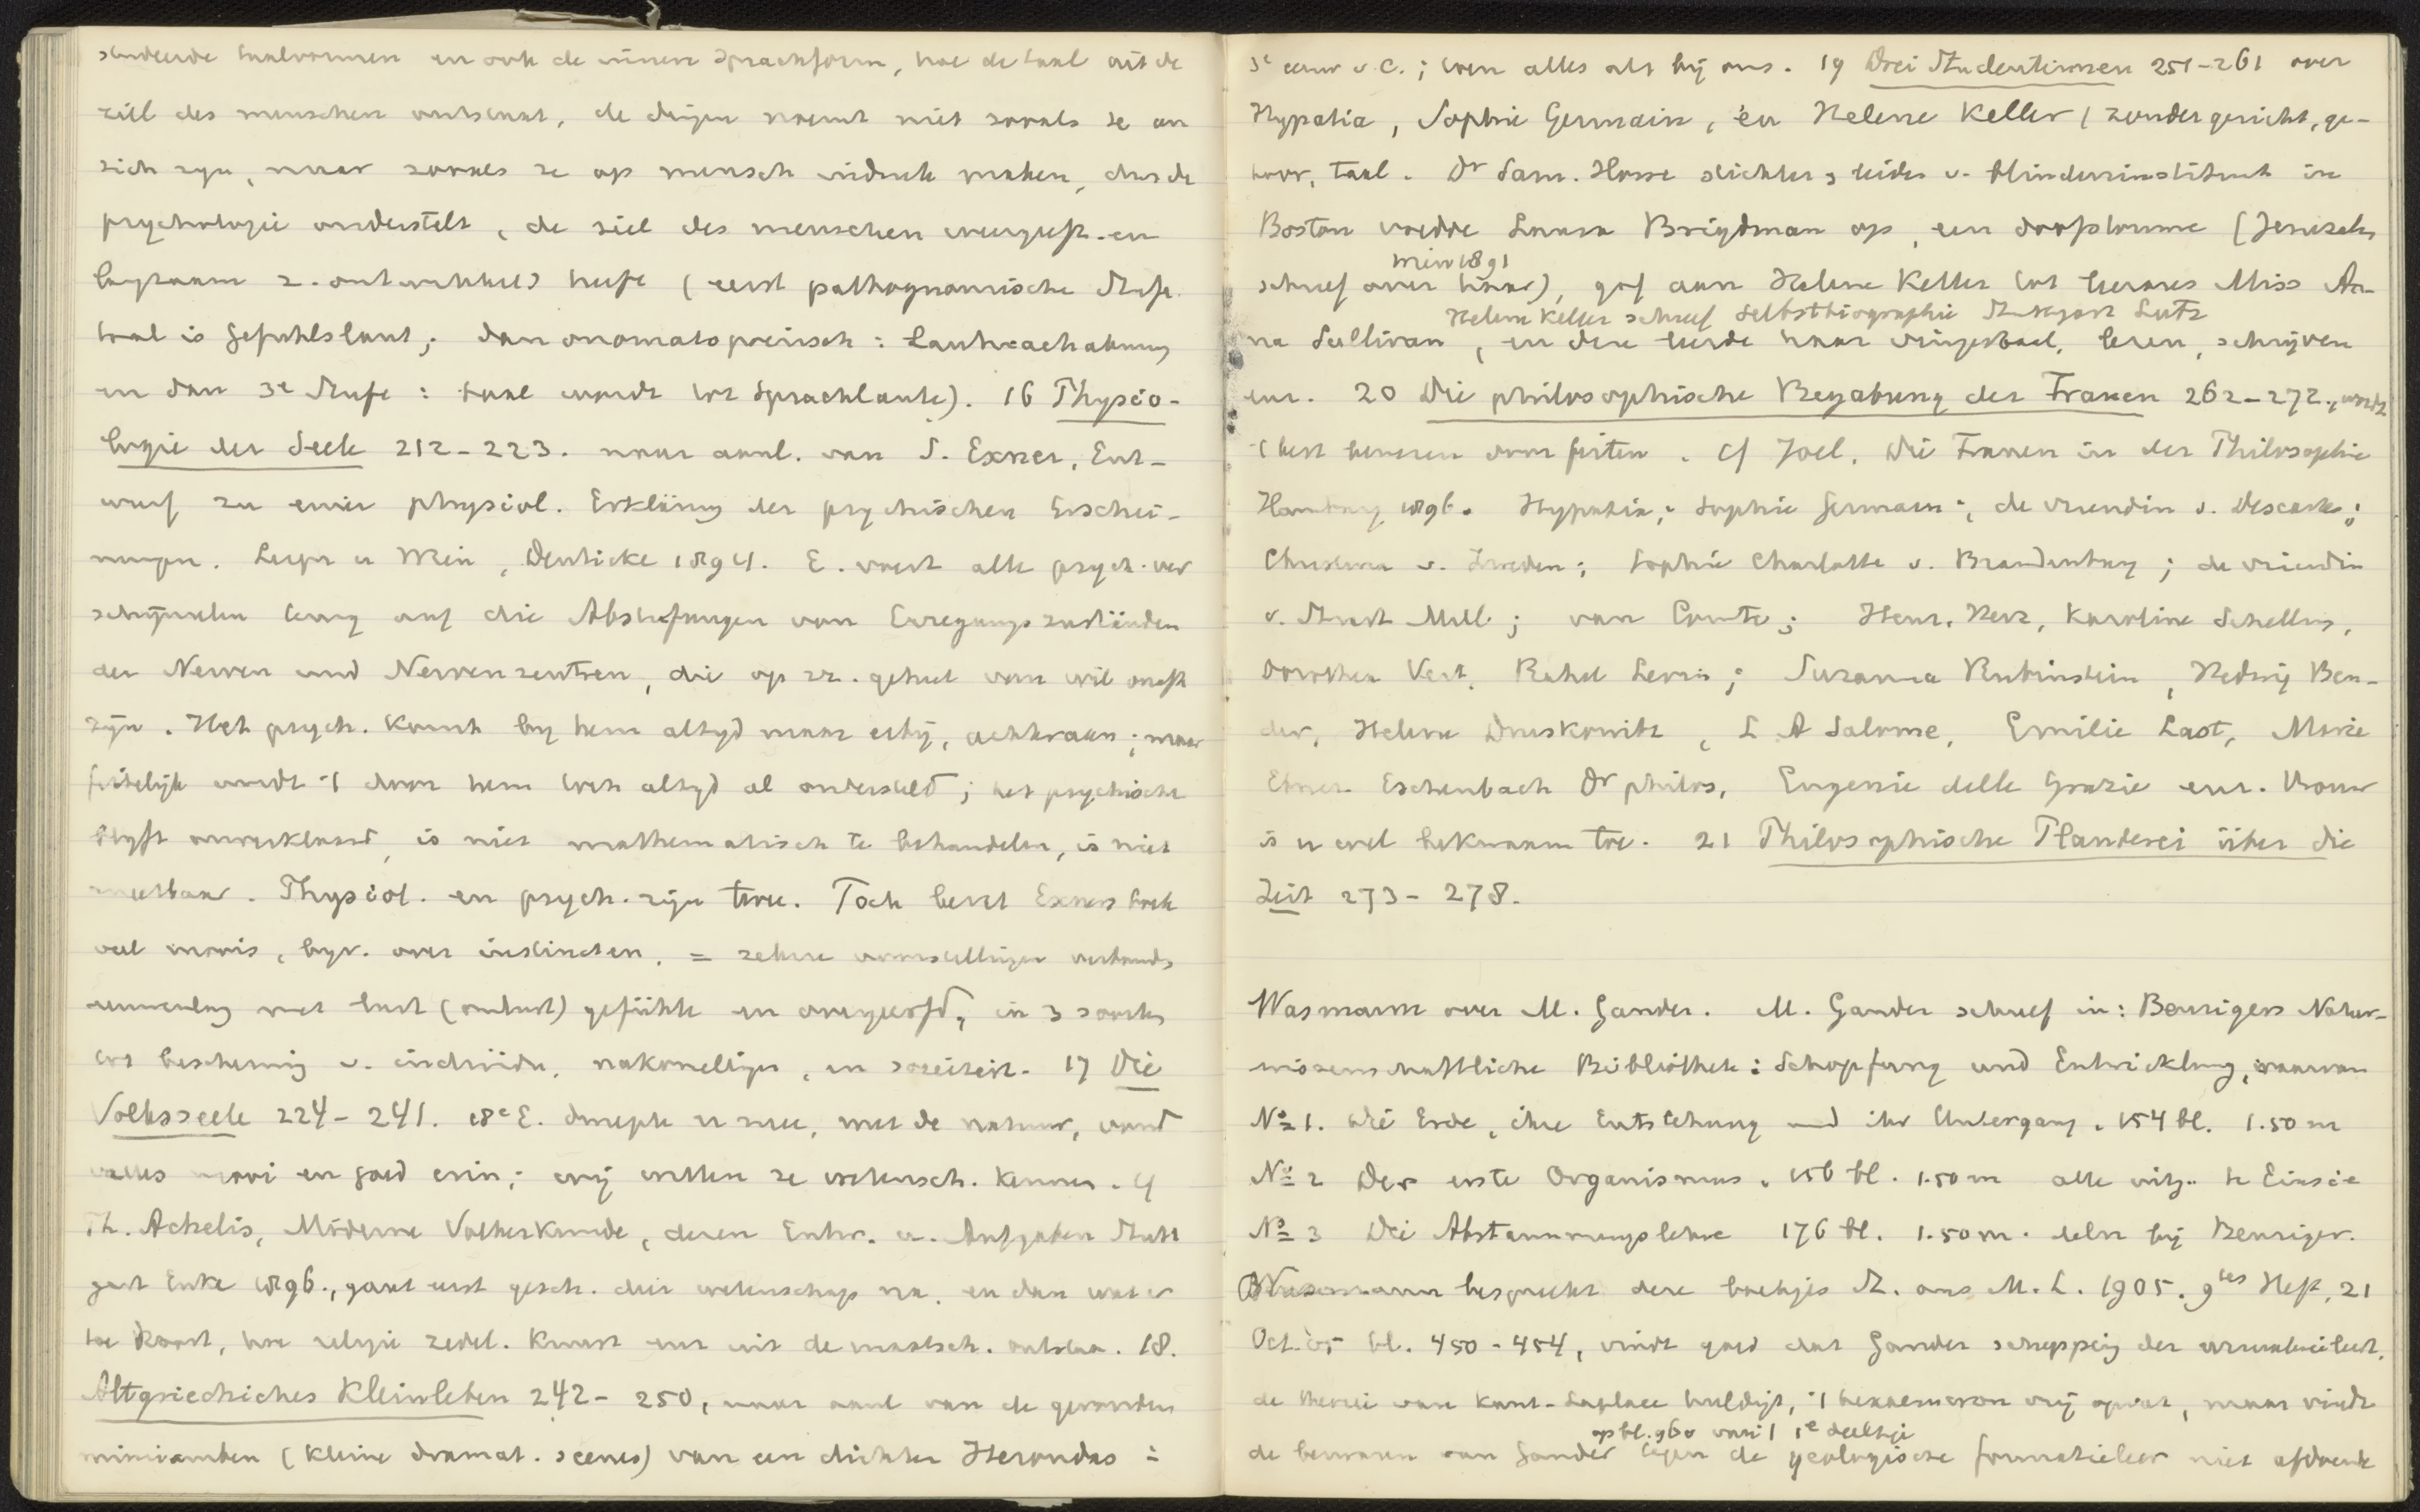 taalvormen en ook de innere Sprachform, hoe de taal uit de
ziel des menschen ontstaat, de dingen noemt niet zooals ze an
sich zyn, maar zooals ze op mensch indruk maken, dus de
psychologie onderstelt, de ziel des menschen weergeeft en
langzaam z. ontwikkeld heeft (eerst pathognomische Stufe
taal is Gefühlslaut; dan onomatopoeisch: Lautnachahmung
en dan 3e Stufe: taal wordt tot Sprachlaute). 16 Physio-
logie der Seele 212-223. naar aanl. van S. Exner, Ent-
wurf zu einer physiol. Erklärung der psychischen Erschei-
nungen. Leipz u Wien, Deuticke 1894. E. voert alle psych. ver
schijnselen terug auf die Abstufungen von Erregungszuständen
der Nerven und Nervenzentren, die op zz. geheel van wil onafh
zijn. Het psych. komt by hem altyd maar erbij, achteraan; maar
feitelijk wordt 't door hem toch altyd al ondersteld; het psychische
blyft onverklaard, is niet mathematisch te behandelen, is niet
meetbaar. Physiol. en psych. zijn twee. Toch bevat Exners boek
veel moois, byv. over instincten, = zekere voorstellingen verbonden
met lust (onlust) gefühle en overgeerfd, in 3 soorten
tot bescherming v. individu, nakomelingen, en sozeiteit. 17 Die
Volksseele 224-241. 18e E. dweepte er mee, met de natuur, vond
alles mooi en goed erin; wij willen ze wetensch. kennen. Cf
Th. Achelis, Moderne Volkerkunde, deren Entw. u. Aufgaben Stutt
gart Enke 1896., gaat eerst gesch. dier wetenschap na, en dan wat er
toe hoort, hoe religie zedel. kunst enz uit de maatsch. ontstaan. 18.
Altgriechiches Kleinleben 242-250, naar aanl van de gevonden
mimiamben (kleine dramat. scenes) van een dichter Herondas ±
3e eeuw v.C.; toen alles als bij ons. 19 Drei Studentinnen 251-261 over
Hypatia, Sophie Germain, en Helene Keller (zonder gezicht, ge-
hoor, taal. Dr Sam. Howe stichter & leider v. blindeninstituut in
Boston voedde Laura Bridgman op, een doofstomme (Jerusalem
Wien 1891
schreef over haar), gaf aan Helene Keller tot lerares Miss An-
Helene Keller schreef Selbstbiographie Stuttgart Lutz
na Sullivan, en deze leerde haar vingertaal, lezen, schrijven
enz. 20 Die philosophische Begabung der Frauen 262-272., wordt
't best bewezen door feiten. Cf Joel, Die Frauen in der Philosophie
Hamburg 1896. Hypatia; Sophie Germain; de vriendin v. Descartes;
Christina v. Zweden; Sophie Charlotte v. Brandenburg; de vriendin
v. Stuart Mill; van Comte; Henr. Herz, Karoline Schelling,
Dorothea Veit, Rahel Levin; Suzanna Rubinstein, Hedwig Ben-
der, Helene Druskowitz, L A Salome, Emilie Last, Marie
Ebner Eschenbach Dr philos, Eugenie delle Grazie enz. Vrouw
is er wel bekwaam toe. 21 Philosophische Plauderei über die
Zeit 273-278.
Wasmann over M. Gander. M. Gander schreef in: Benzigers Natur-
wissenschaftliche Bibliothek: Schopfung und Entwicklung, waarvan
No 1. Die Erde, ihre Entstehung und ihr Untergang. 154 bl. 1.50 m
No 2 Der erste Organismus. 156 bl. 1.50 m alle uitg. te Einsie
No 3 Die Abstammungslehre 176 bl. 1.50 m. deln bij Benziger.
Wasmann bespreekt deze boekjes St. aus M. L. 1905. 9tes Heft, 21
Oct. 05 bl. 450-454, vindt goed dat Gander schepping der
de theorie van Kant-Laplace huldigt, 't hexaemeron vrij opvat, maar vindt
op bl. 960 van 't 1e deeltje
de bewaren van Gander tegen de geologische formatieleer niet afdoende